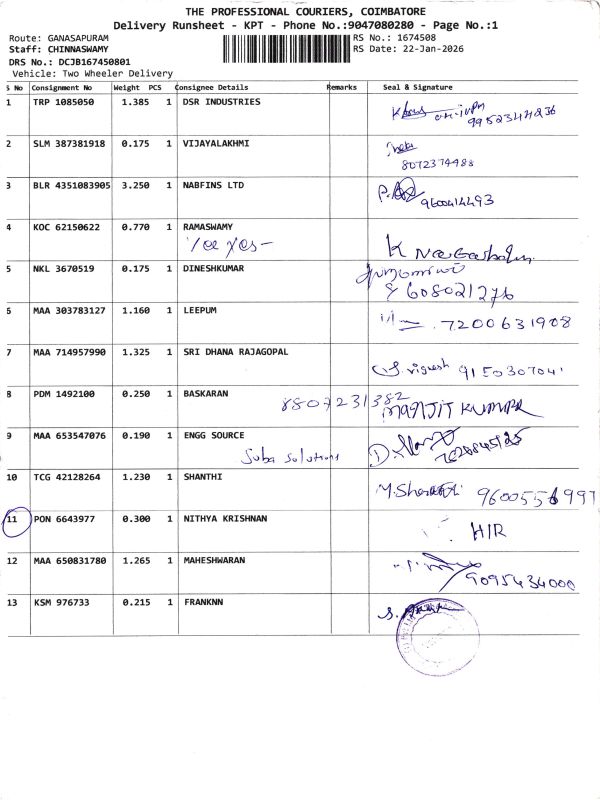 THE PROFESSIONAL COURIERS, COIMBATORE
Delivery Runsheet - KPT - Phone No.:9047080280 - Page No.:1
Route: GANASAPURAM
RS No.: 1674508
Staff: CHINNASWAMY
RS Date: 22-Jan-2026
DRS No.: DCJB167450801
Vehicle: Two Wheeler Delivery
S No Consignment No Weight PCS Consignee Details Remarks Seal & Signature
1 TRP 1085050 1.385 1 DSR INDUSTRIES
2 SLM 387381918 0.175 1 VIJAYALAKHMI
8072374988
3 BLR 4351083905 3.250 1 NABFINS LTD
9600414493
4 KOC 62150622 0.770 1 RAMASWAMY
5 NKL 3670519 0.175 1 DINESHKUMAR
6 MAA 303783127 1.160 1 LEEPUM
7200631908
7 MAA 714957990 1.325 1 SRI DHANA RAJAGOPAL
S. vignesh 9150307041
8 PDM 1492100 0.250 1 BASKARAN
8807231382
MANJIT KUMAR
9 MAA 653547076 0.190 1 ENGG SOURCE
Suba Solutions
10 TCG 42128264 1.230 1 SHANTHI
11 PON 6643977 0.300 1 NITHYA KRISHNAN
H/R
12 MAA 650831780 1.265 1 MAHESHWARAN
9095434000
13 KSM 976733 0.215 1 FRANKNN